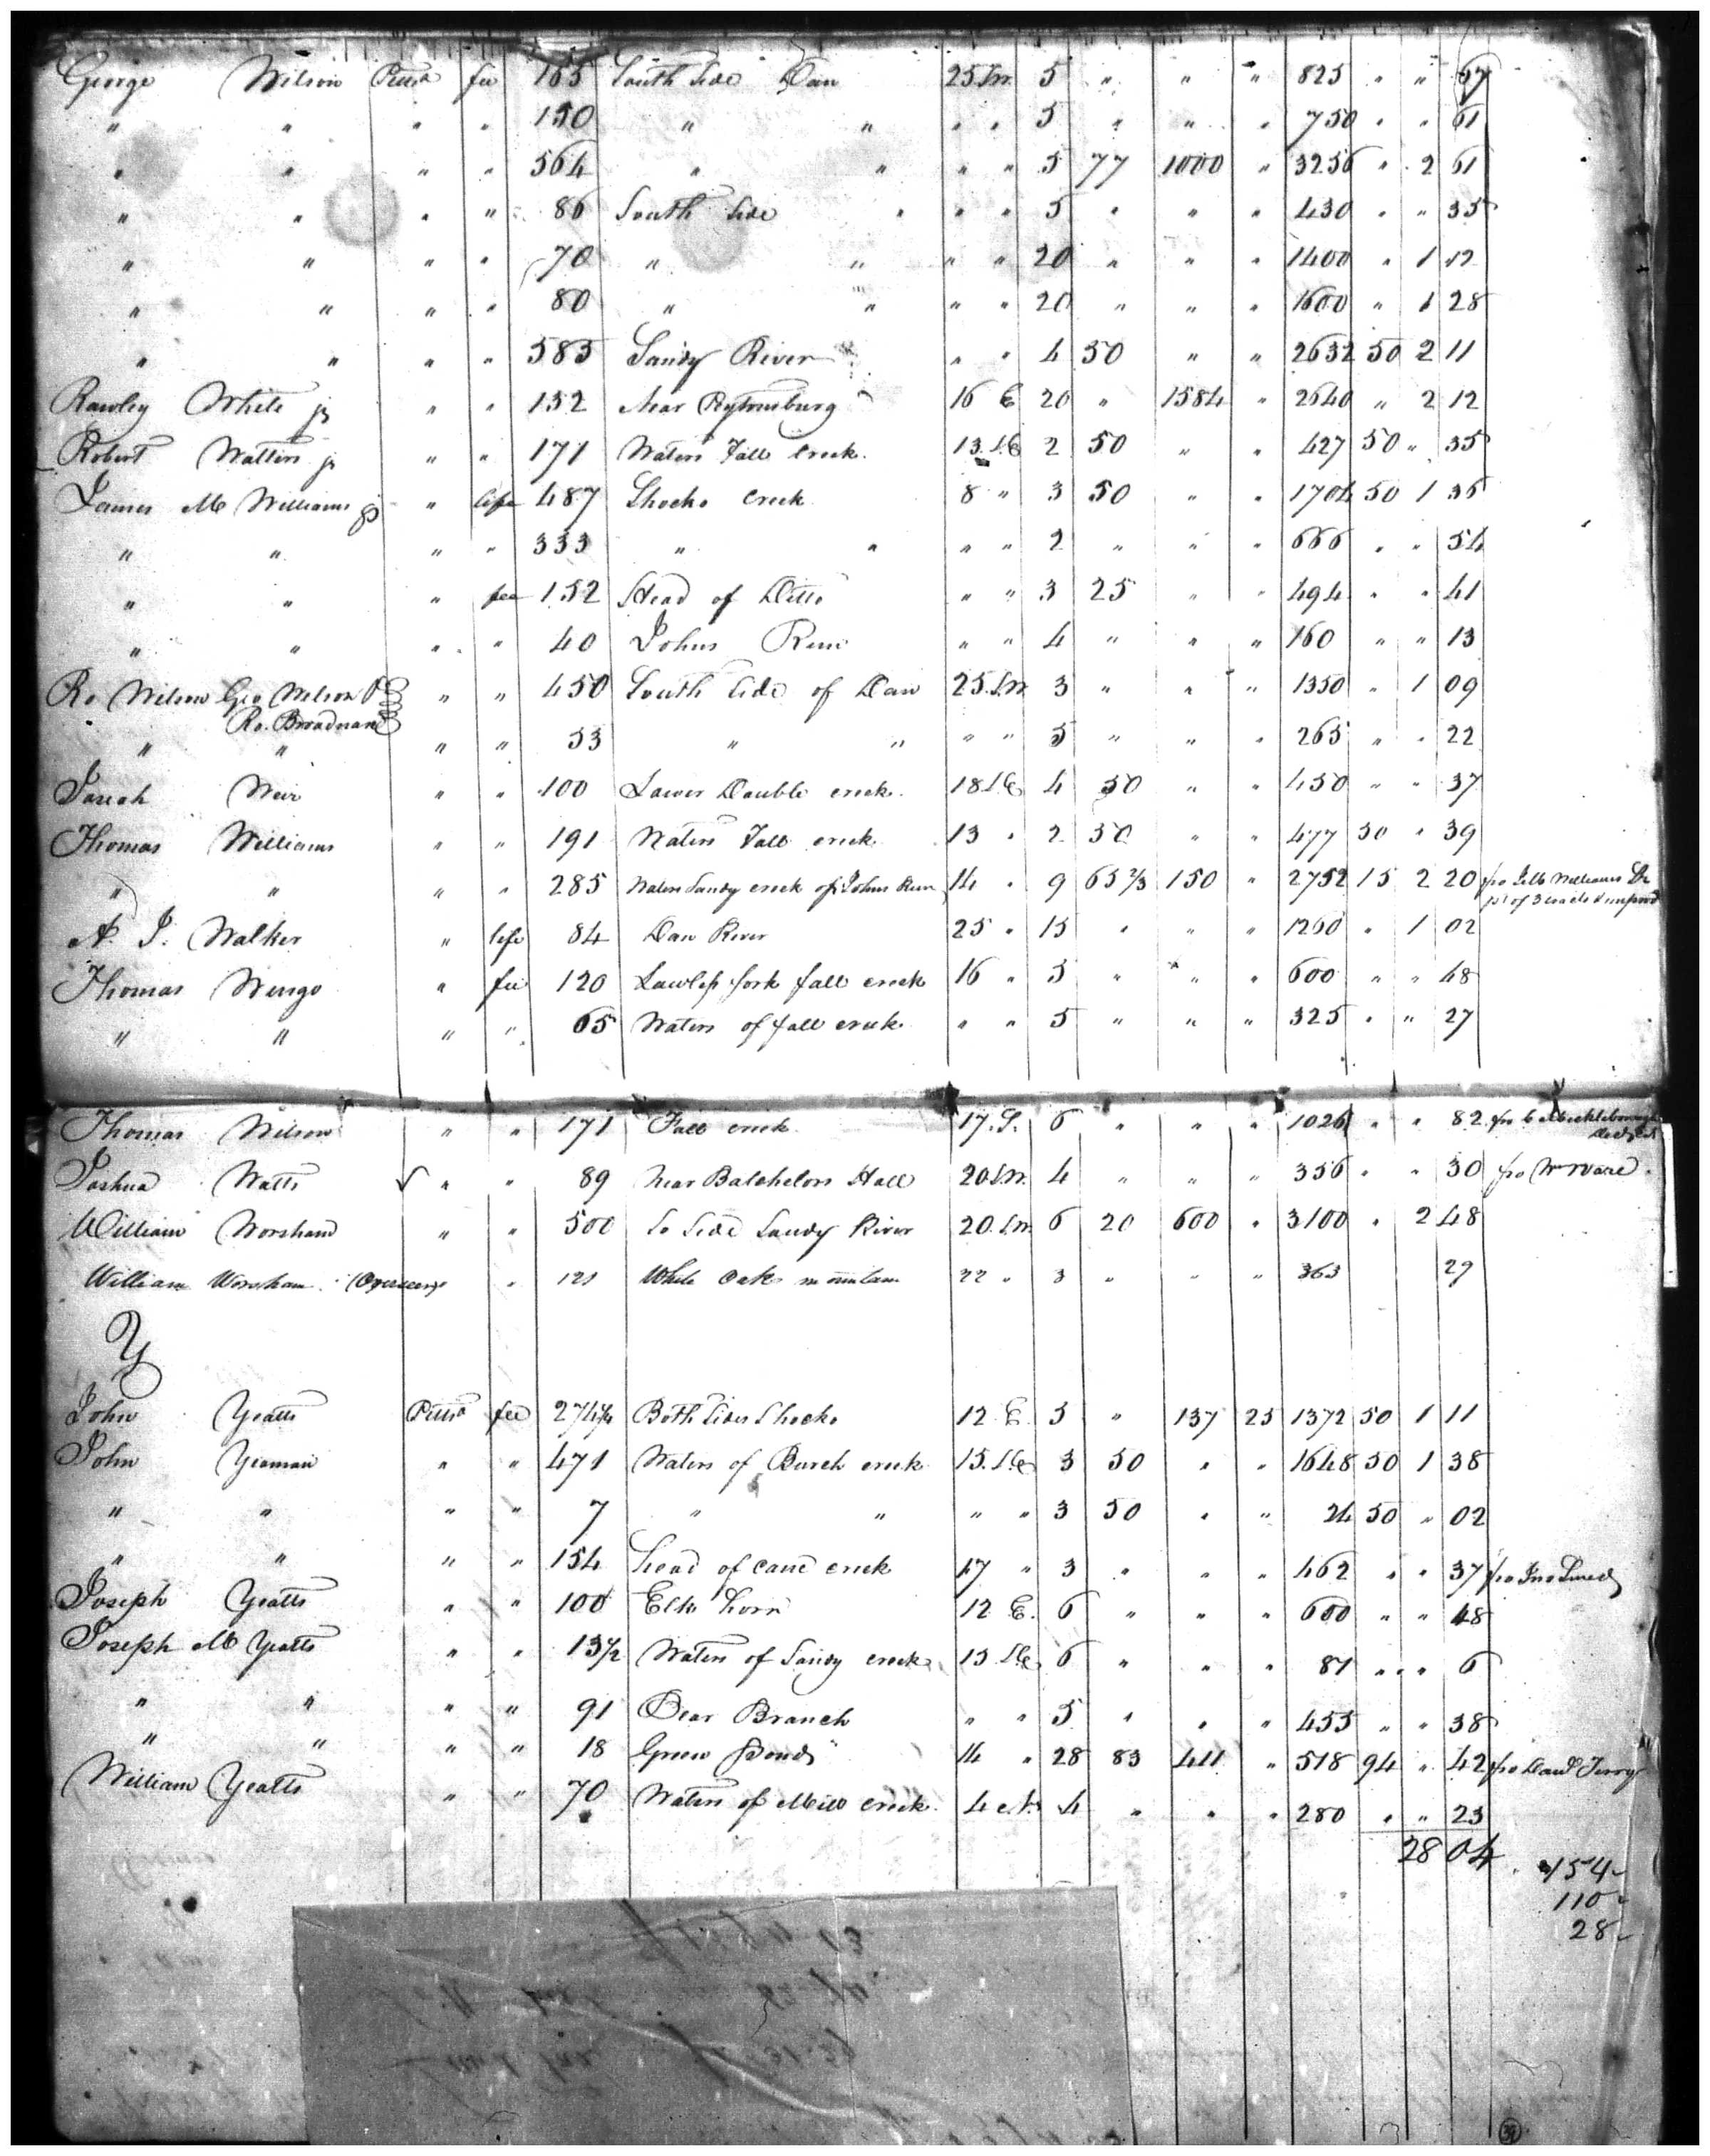 George Wilson Pitts fee 165 South Side Dan 25 S.W. 5 " " " 825 " " 67
" " " " 150 " " " " 5 " " " 750 " " 61
" " " " 564 " " " " 5 77 1000 " 3256 " 2 61
" " " " 86 South Side " " " 5 " " " 430 " " 35
" " " " 70 " " " " 20 " " " 1400 " 1 12
" " " " 80 " " " " 20 " " " 1600 " 1 28
" " " " 585 Sandy River " " 4 50 " " 2632 50 2 11
Rawley White jr " " 132 Near 16 E 20 " 1584 " 2640 " 2 12
Robert Watson jr " " 171 Waters Fall Creek 13 S.E 2 50 " " 427 50 " 35
James M Williams jr " life 487 Shocko Creek 8 " 3 50 " " 1704 50 1 36
" " " " 333 " " " " 2 " " " 666 " " 54
" " " fee 152 Head of Ditto " " 3 25 " " 494 " " 41
" " " " 40 Johns Run " " 4 " " " 160 " " 13
Ro Wilson Geo Wilson P " " 450 South Side of Dan 25 S.W. 3 " " " 1350 " 1 09
Ro. Broadnax
" " " " 53 " " " " 5 " " " 265 " " 22
Josiah Weir " " 100 Lower Double creek 18 S.E 4 50 " " 450 " " 37
Thomas Williams " " 191 Waters Fall creek 13 " 2 50 " " 477 50 " 39
" " " " 285 Waters Sandy creek of Johns Run 14 " 9 65 2/3 150 " 2752 15 2 20 fro J M Williams Sr
pt of 3 tracts & improvd
A. J. Walker " life 84 Dan River 25 " 15 " " " 1260 " 1 02
Thomas Wingo " fee 120 Lawless fork fall creek 16 " 5 " " " 600 " " 48
" " " " 65 Waters of fall creek " " 5 " " " 325 " " 27
Thomas Wilson " " 171 Fall creek 17 S. 6 " " " 1026 " " 82 fro C Meckleborough
Joshua Watts √ " " 89 near Batchelors Hall 20 S.W. 4 " " " 356 " " 30 fro Wm Ware
William Worsham " " 500 So Side Sandy River 20 S.W. 6 20 600 " 3100 " 2 48
William Worsham (Overseer) " 121 White Oak mountain 22 " 3 " " " 363 29
Y
John Yeatts Pitts fee 274 1/2 Both Sides Shocko 12 E. 5 " 137 25 1372 50 1 11
John Yeaman " " 471 Waters of Burch creek 15 S.E 3 50 " " 1648 50 1 38
" " " " 7 " " " " 3 50 " " 24 50 " 02
" " " " 154 head of cane creek 17 " 3 " " " 462 " " 37 fro Jno
Joseph Yeatts " " 100 Elk horn 12 E. 6 " " " 600 " " 48
Joseph M Yeatts " " 13 1/2 Waters of Sandy creek 13 S.E 6 " " " 81 " " 6
" " " " 91 Bear Branch " " 5 " " " 455 " " 38
" " " " 18 Green Pond 14 " 28 83 411 " 518 94 " 42 fro David Terry
William Yeatts " " 70 Waters of Mill creek 4 4 " " " 280 " " 23
28 04
154
110
28
39